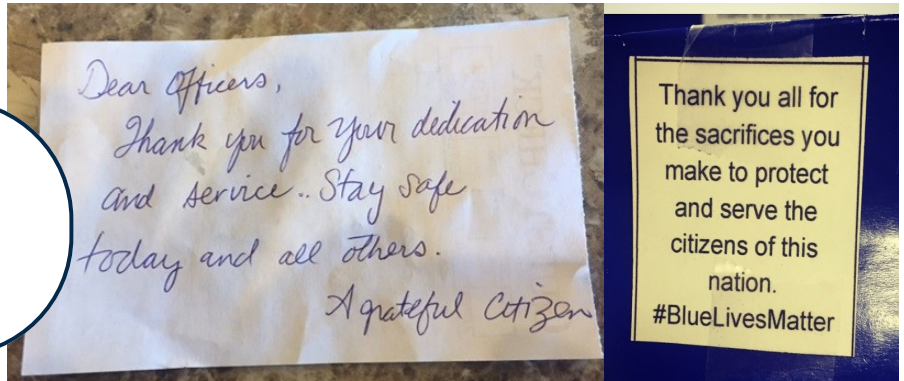 Dear Officers,
Thank you for your dedication
and service.. Stay safe
today and all others.
A grateful Citizen
Thank you all for
the sacrifices you
make to protect
and serve the
citizens of this
nation.
#BlueLivesMatter